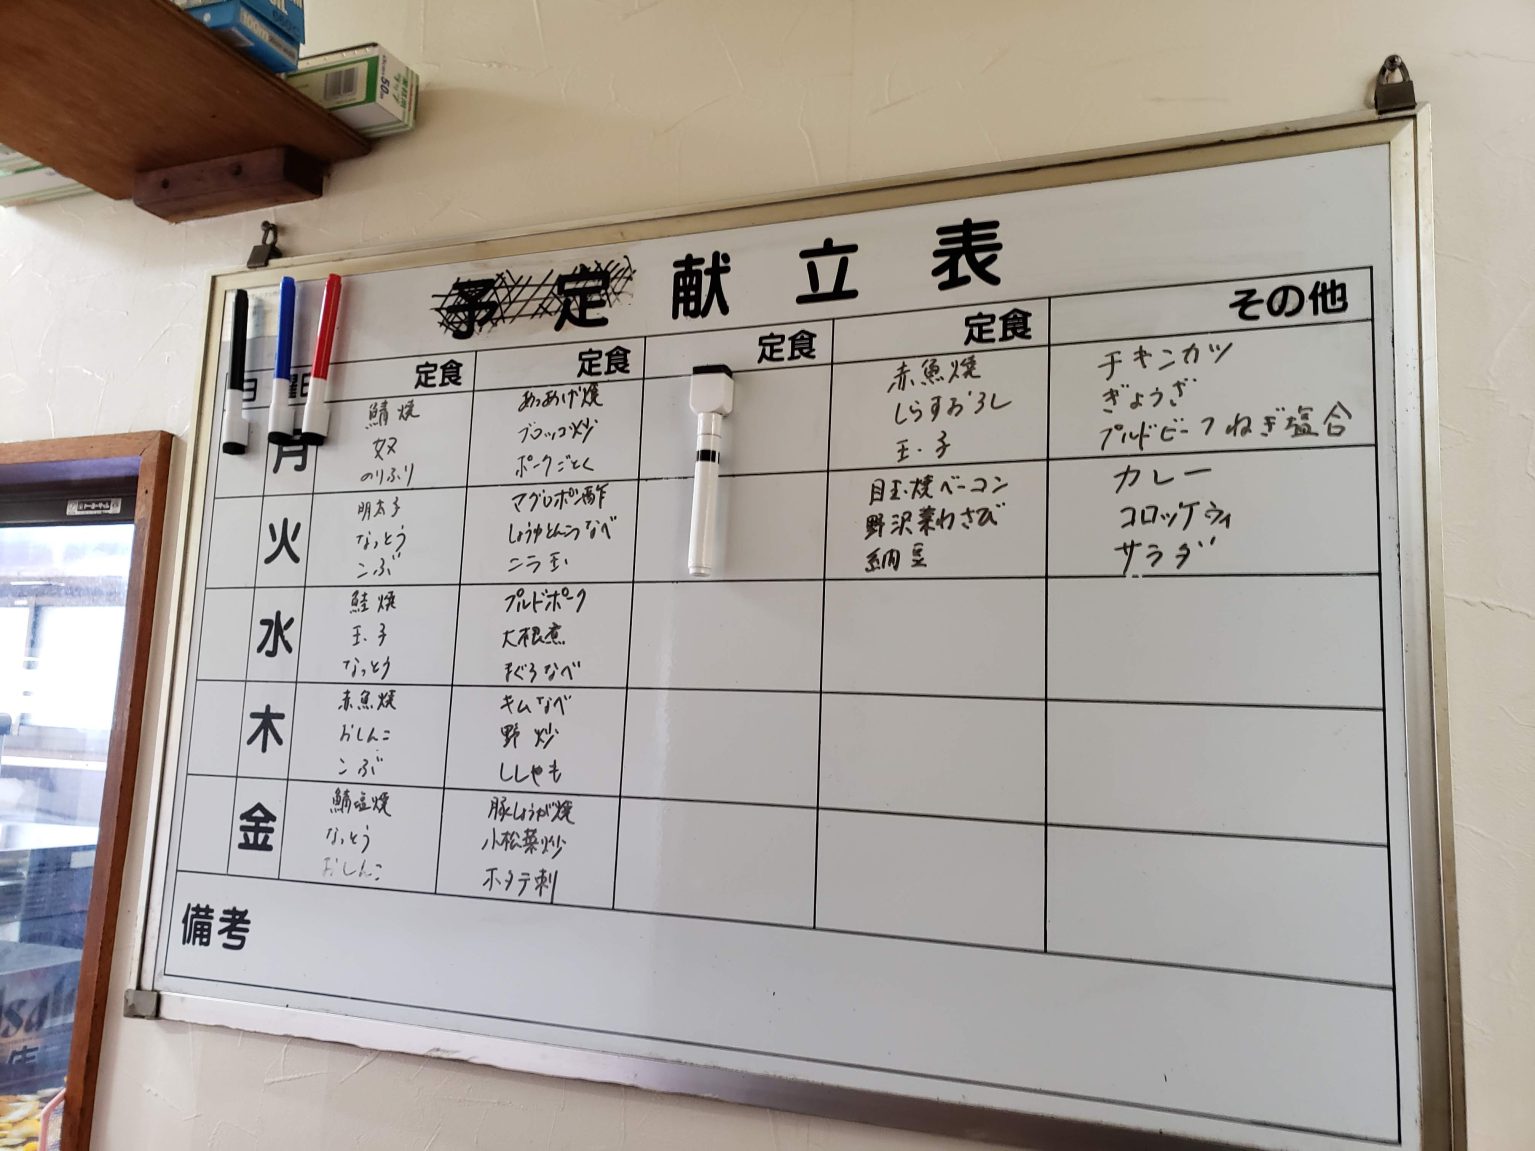 予定献立表
定食 定食 定食 定食 その他
月
鯖焼
奴
のりふり
あつあげ焼
ブロッコ炒
ポークごとく
赤魚焼
しらすおろし
玉子
チキンカツ
ぎょうざ
プルドビーフねぎ塩合
火
明太子
なっとう
こぶ
マグロポン酢
しょうゆとんこつなべ
ニラ玉
目玉焼ベーコン
野沢菜わさび
納豆
カレー
コロッケウィ
サラダ
水
鮭焼
玉子
なっとう
プルドポーク
大根煮
まぐろなべ
木
赤魚焼
おしんこ
こぶ
キムなべ
野炒
ししゃも
金
鯖塩焼
なっとう
おしんこ
豚しょうが焼
小松菜炒
ホタテ刺
備考